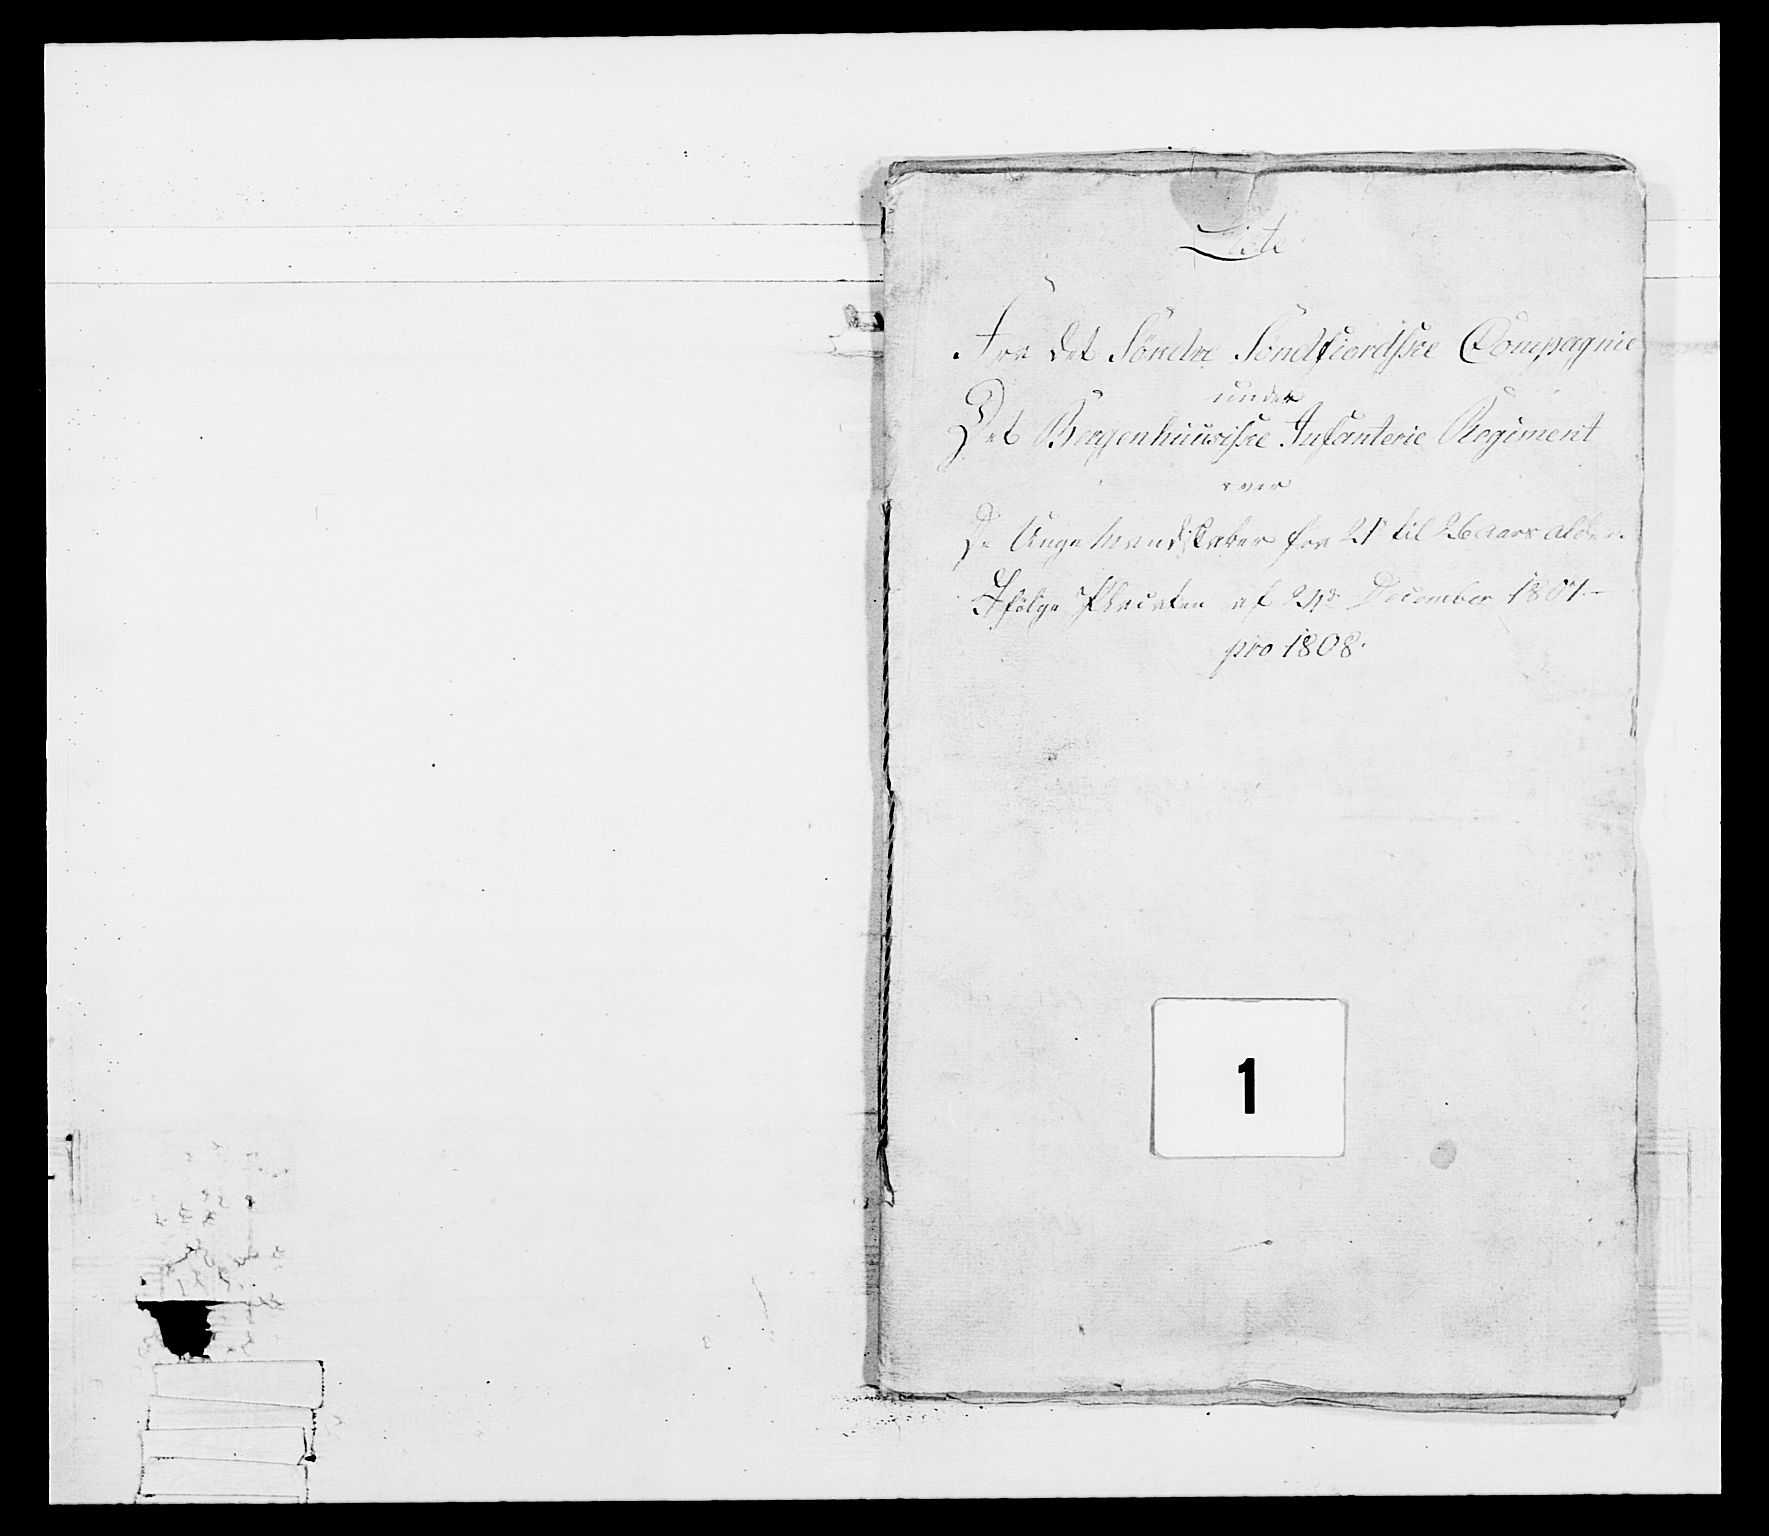 Liste
Fra det Söndre Söndfiordske Compagnie
under
Det Bergenhuusiske Infanterie Regiment
over
De Unge Mandskaber fra 21 til 26 aars alder.
Ifölge Placaten af December 1807.-
pro 1808.
1